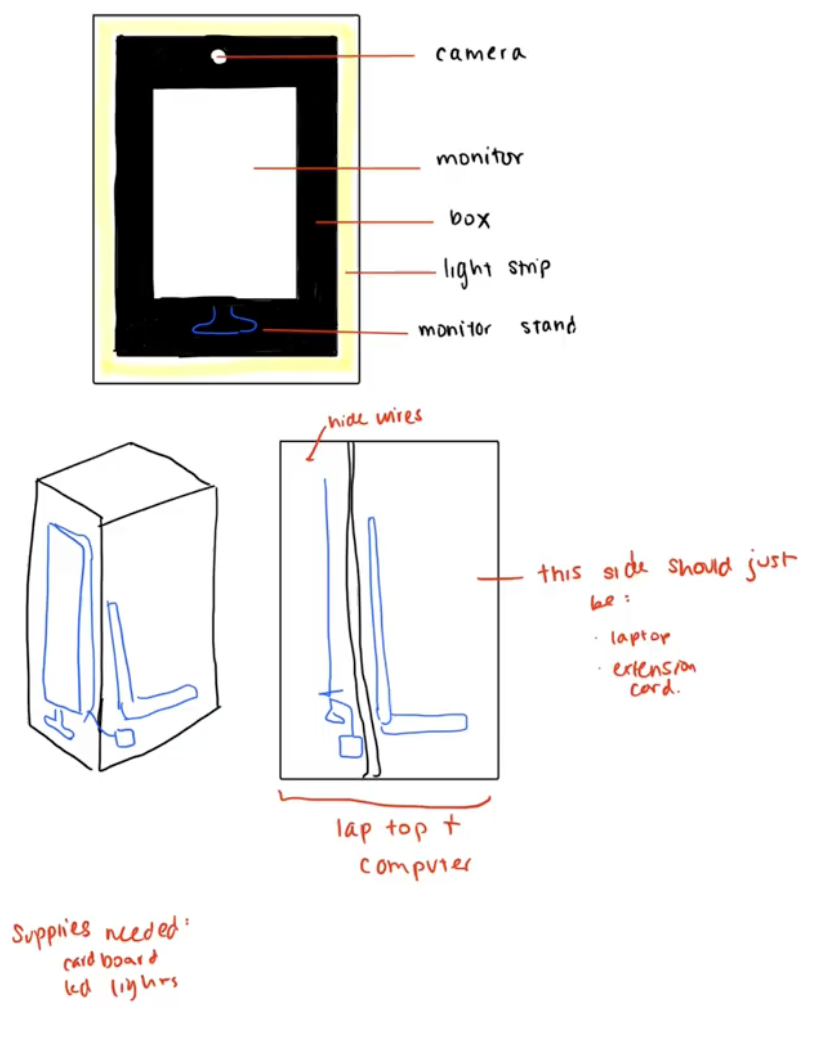 camera
monitor
box
light strip
monitor stand
hide wires
this side should just
be:
· laptop
· extension
cord.
lap top +
computer
Supplies needed:
cardboard
led lights